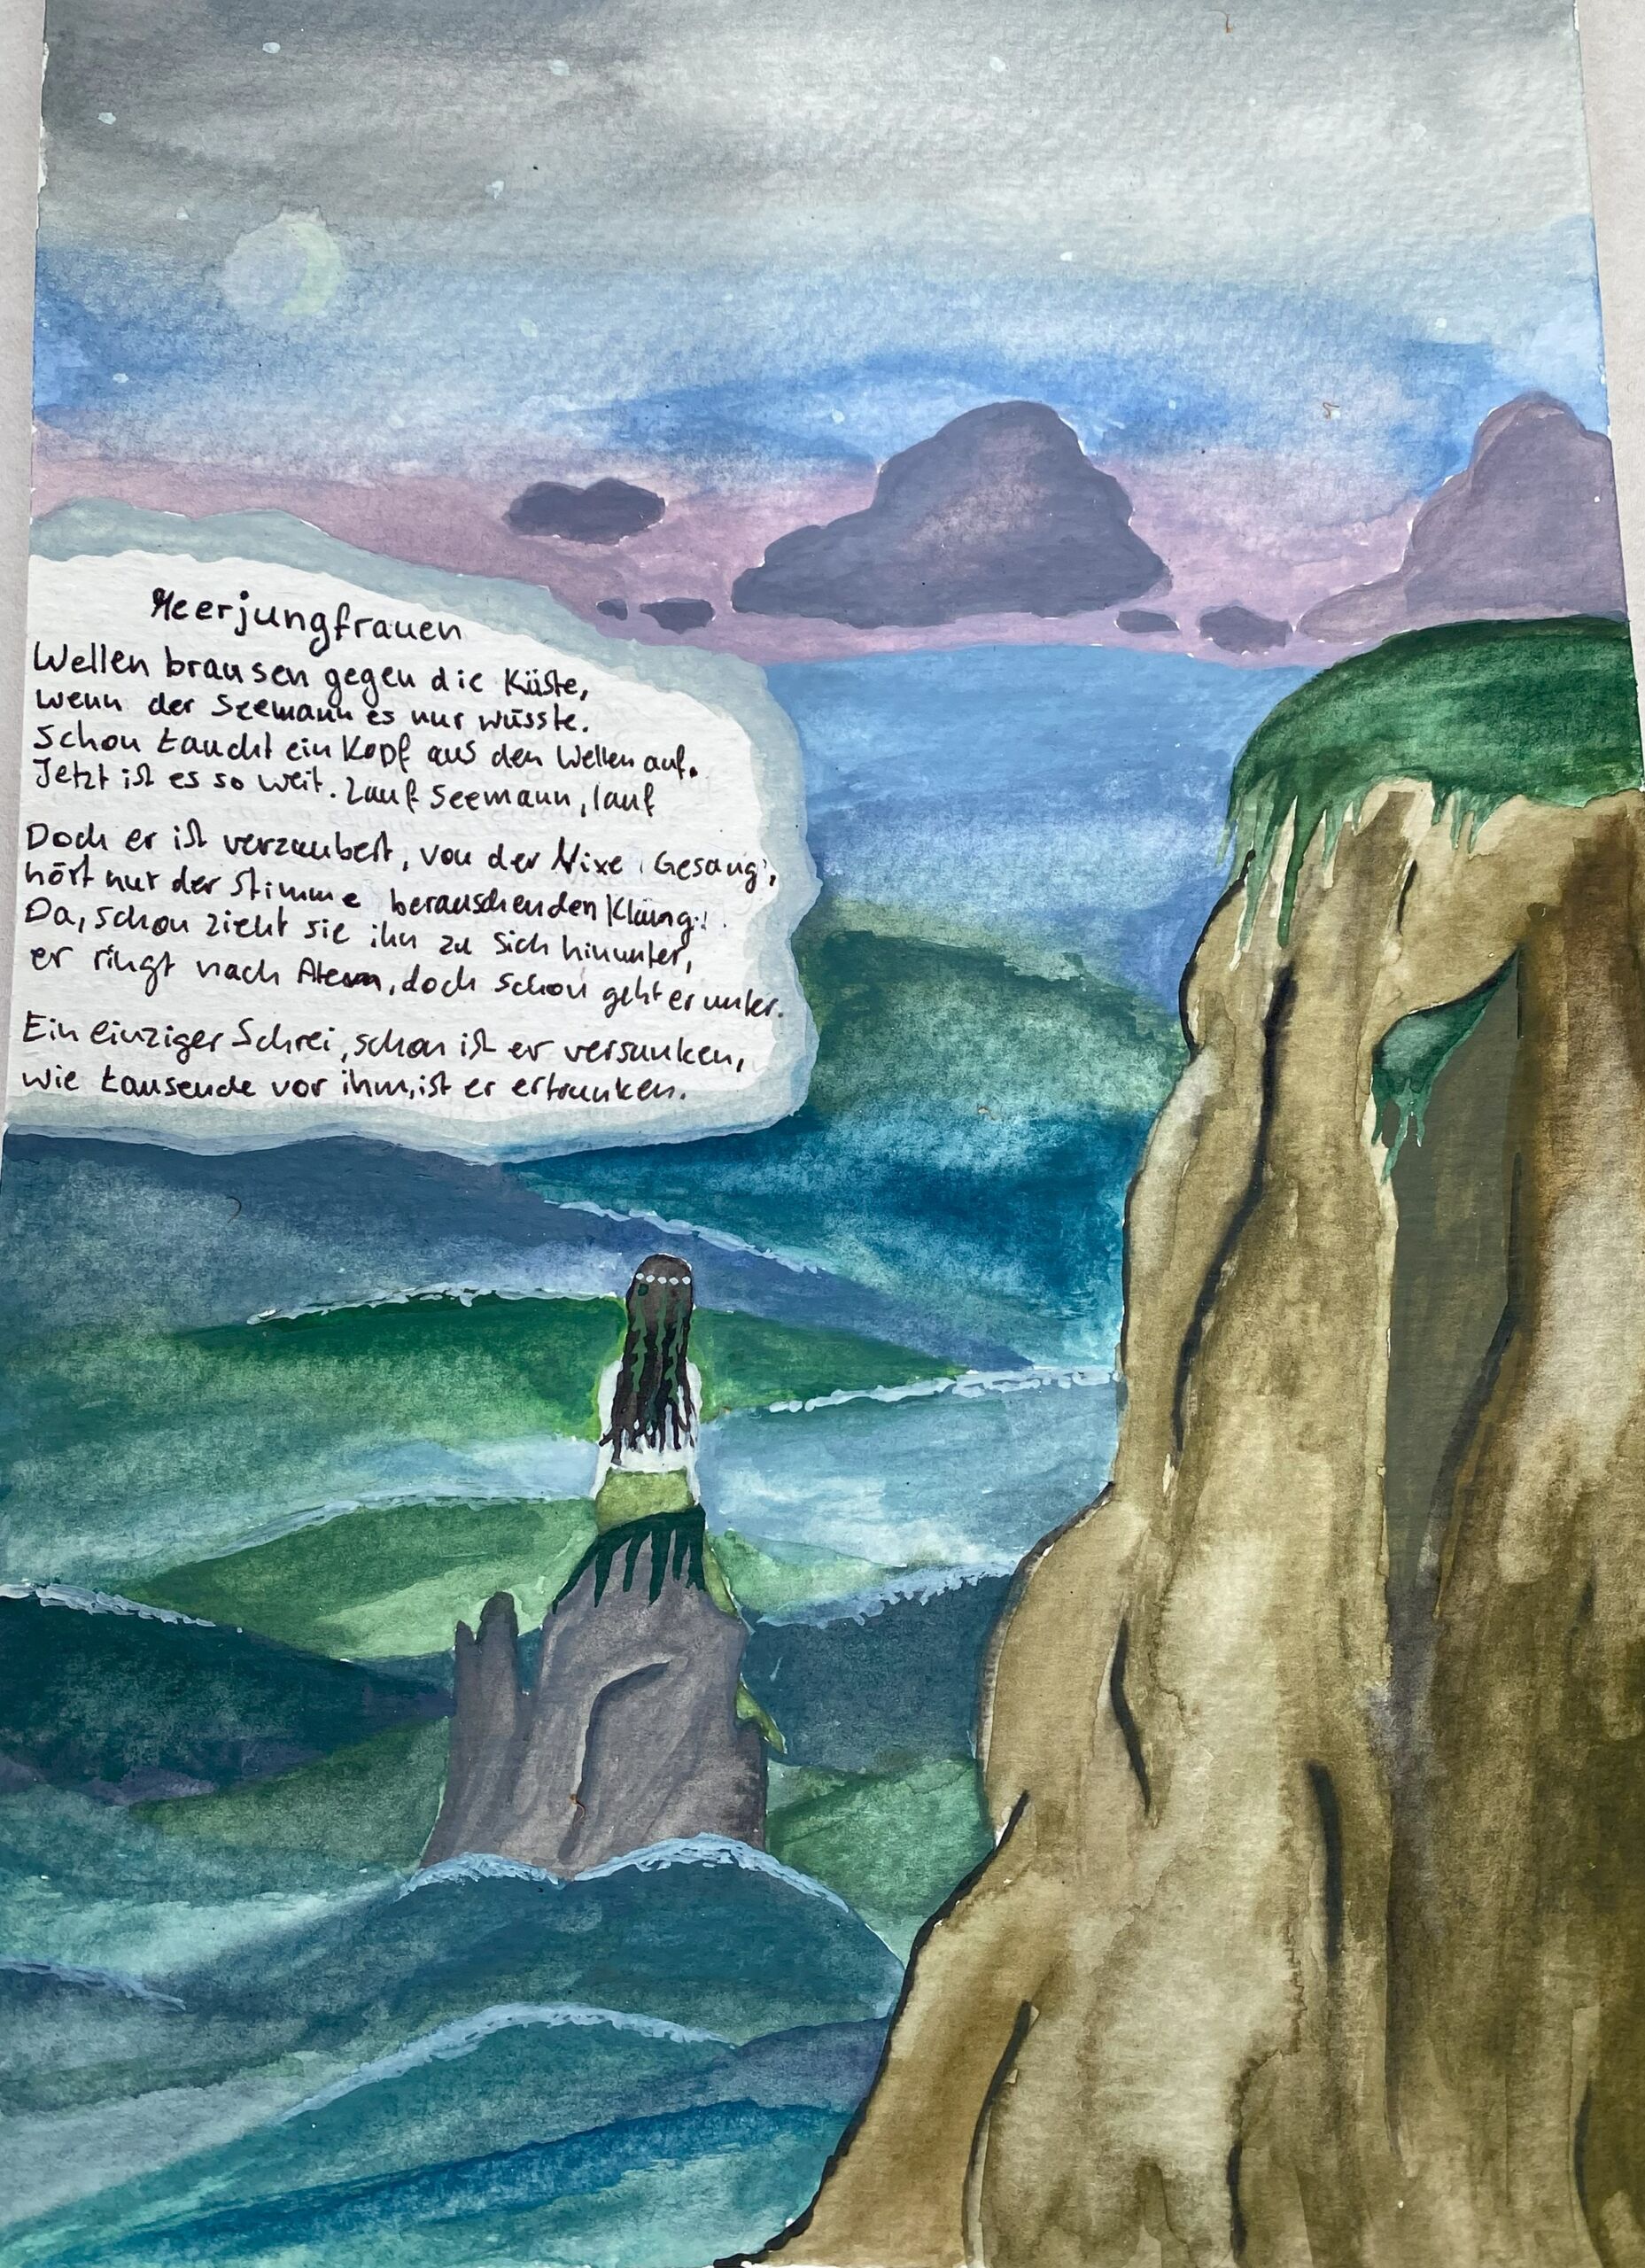 Meerjungfrauen
Wellen brausen gegen die Küste,
wenn der Seemann es nur wüsste.
Schon taucht ein Kopf aus den Wellen auf.
Jetzt ist es so weit. Lauf Seemann, lauf
Doch er ist verzaubert, von der Nixe Gesang,
hört nur der Stimme berauschenden Klang.
Da, schon zieht sie ihn zu sich hinunter,
er ringt nach Atem, doch schon geht er unter.
Ein einziger Schrei, schon ist er versunken,
wie tausende vor ihm, ist er ertrunken.